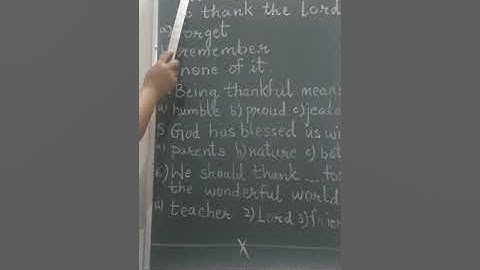 thank the Lord
a) forget
remember
none of it.
Being thankful means
a) humble b) proud c) jealo
5. God has blessed us wi
a) parents b) nature c) bot
6) We should thank ... fo
the wonderful world
a) teacher 2) Lord 3) frien
X